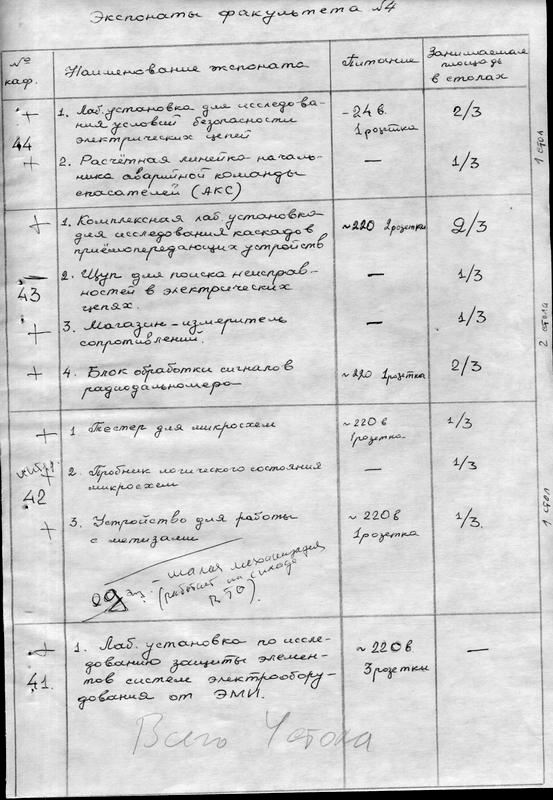 Экспонаты факультета №4
№ каф.
Наименование экспоната
Питание
Занимаемая площадь в столах
+
44
+
1. Лаб. установка для исследова-
ния условий безопасности
электрических цепей
- 24 в.
1 розетка
2/3
2. Расчётная линейка началь-
ника аварийной команды
спасателей (АКС)
—
1/3
1 стол
+
43
+
+
1. Комплексная лаб. установка
для исследования каскадов
приёмопередающих устройств
~220 2 розетки
2/3
2. Щуп для поиска неисправ-
ностей в электрических
цепях.
—
1/3
3. Магазин-измеритель
сопротивлений.
—
1/3
4. Блок обработки сигналов
радиодальномера
~220 1 розетка
2/3
2 стола
+
42
+
1 Тестер для микросхем
~220 в
1 розетка
1/3
2. Пробник логического состояния
микросхем
—
1/3
3. Устройство для работы
с метизами
~220 в
1 розетка
1/3.
1 стол
- малая механизация
(работает на складе
РТО).
+
41.
1. Лаб. установка по иссле-
дованию защиты элемен-
тов систем электрообору-
дования от ЭМИ.
~220 в
3 розетки
—
Всего 4 стола